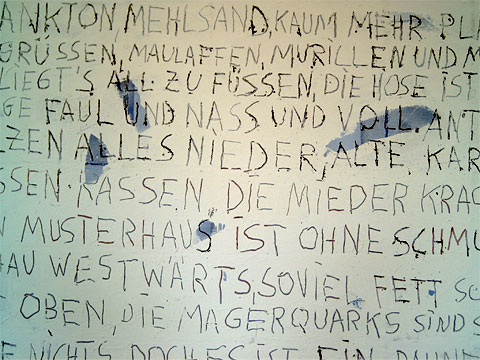 ANKTON, MEHLSAND, KAUM MEHR PL
GRÜSSEN, MAULAFFEN, MURILLEN UND M
LIEGT'S ALL ZU FÜSSEN, DIE HOSE IST
GE FAUL UND NASS UND VOLL. ANT
ZEN ALLES NIEDER, ALTE KAR
SSEN RASSEN, DIE MIEDER KRAC
N MUSTERHAUS IST OHNE SCHMU
HAU WESTWÄRTS, SOVIEL FETT SC
T OBEN, DIE MAGERQUARKS SIND S
E NICHTS, DOCH ES IST EIN